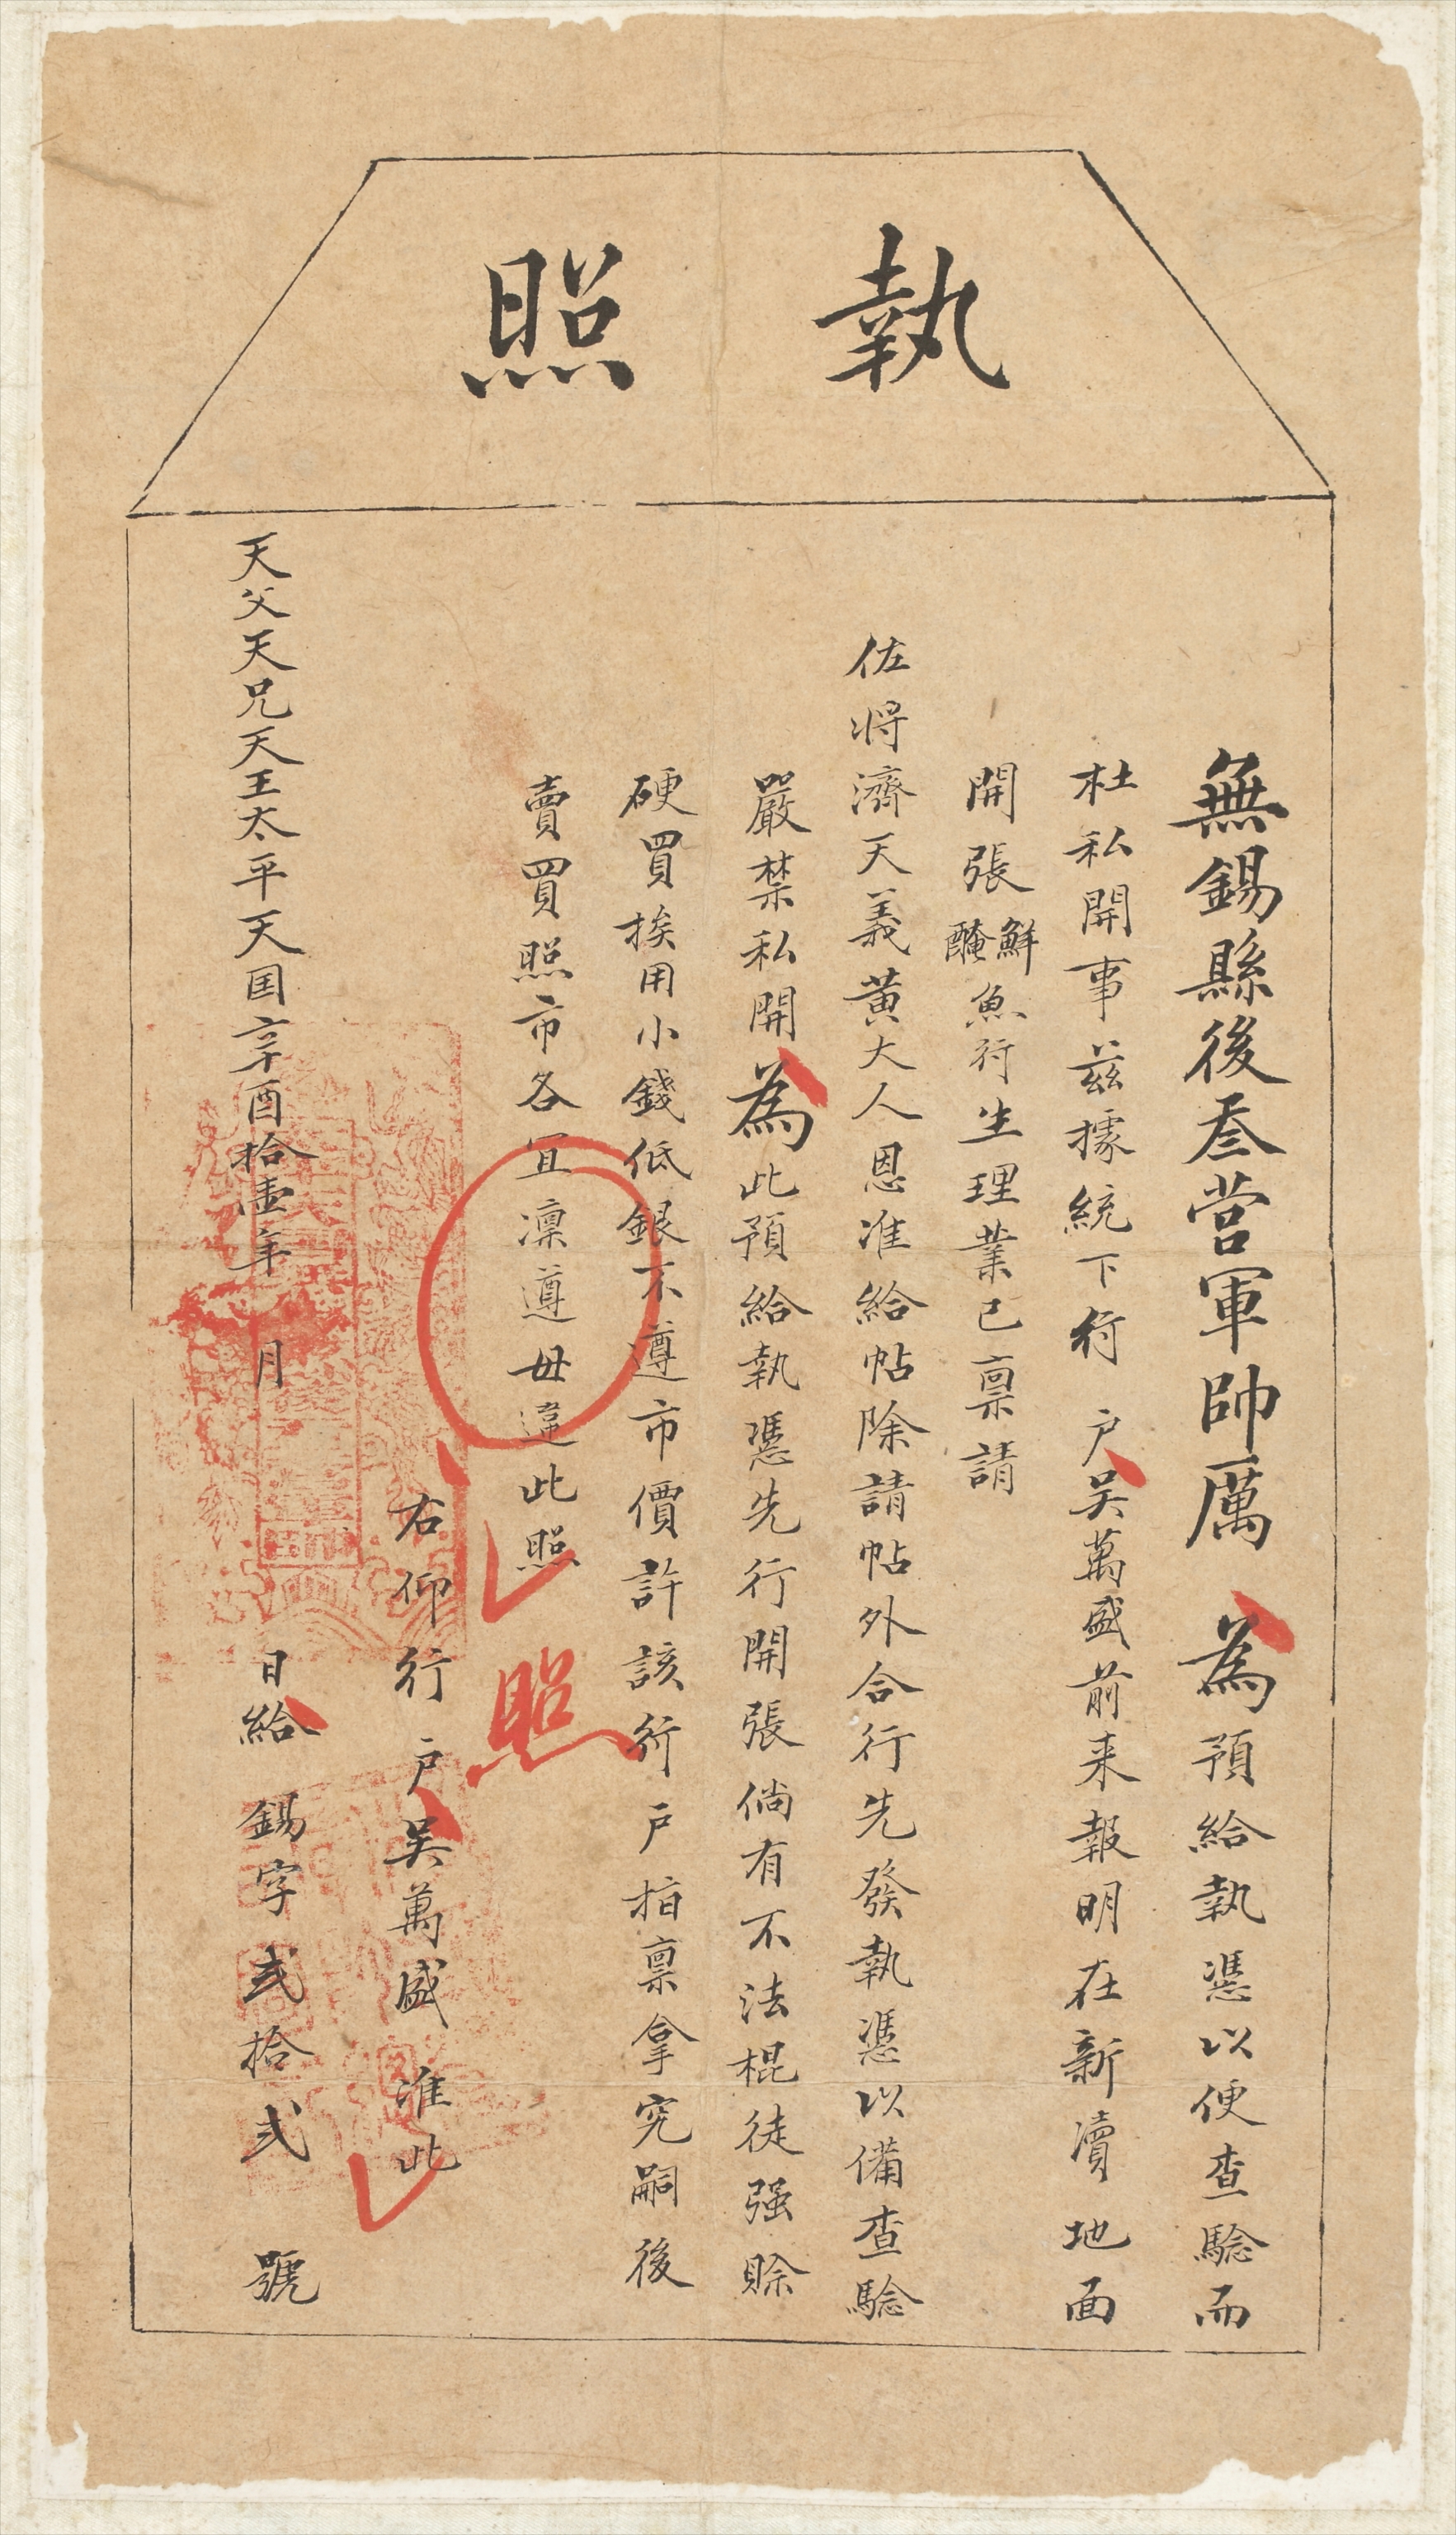 執照
無錫縣後叁營軍帥厲 為預給執憑以便查驗而
杜私開事茲據統下行户吳萬盛前来報明在新瀆地面
開張鮮醃魚行生理業已禀請
佐將濟天義黃大人恩准給帖除請帖外合行先發執憑以備查驗
嚴禁私開為此預給執憑先行開張倘有不法棍徒强賒
硬買挨用小錢低銀不遵市價許該行户指禀拿究嗣後
賣買照市各宜凜遵毋違此照
照
右仰行户吳萬盛准此
天父天兄天王太平天囯辛酉拾壹年 月 日給 錫字弍拾弍號